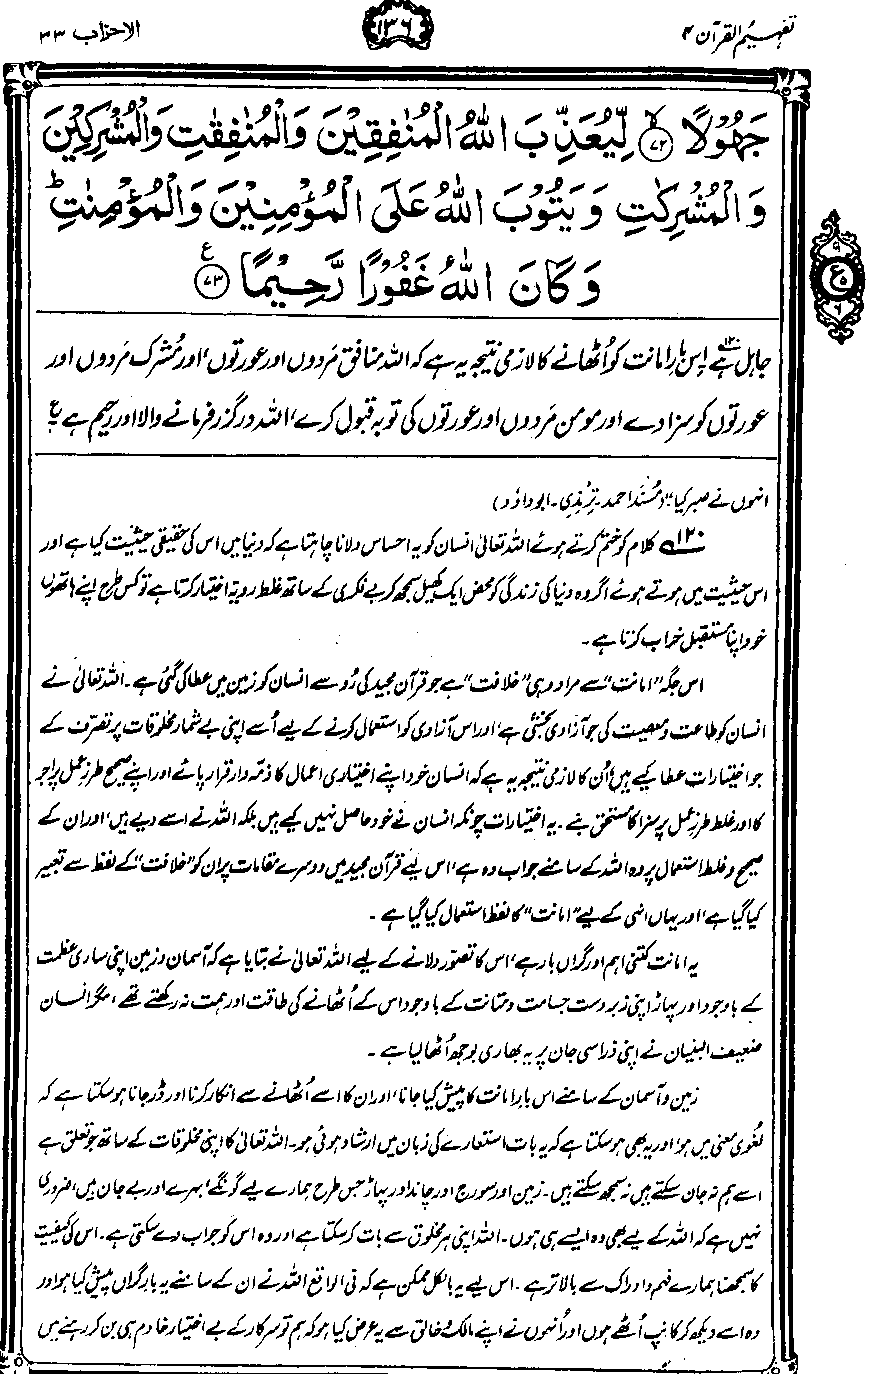 تفہیم القرآن ۴
۱۳۶
الاحزاب ۳۳
جَهُوْلًا ۙ﴿۷۲﴾ لِّيُعَذِّبَ اللّٰهُ الْمُنٰفِقِيْنَ وَالْمُنٰفِقٰتِ وَالْمُشْرِكِيْنَ
وَالْمُشْرِكٰتِ وَيَتُوْبَ اللّٰهُ عَلَى الْمُؤْمِنِيْنَ وَالْمُؤْمِنٰتِ ؕ
وَكَانَ اللّٰهُ غَفُوْرًا رَّحِيْمًا ﴿۷۳﴾ ع
۹
ع
۵
۶
جاہل ہے۱۲۰ اِس بارِ امانت کو اُٹھانے کا لازمی نتیجہ یہ ہے کہ اللہ منافق مَردوں اور عورتوں، اور مُشرک مَردوں اور
عورتوں کو سزا دے اور مومن مَردوں اور عورتوں کی توبہ قبول کرے، اللہ درگزر فرمانے والا اور رحیم ہے ع
انہوں نے صبر کیا“ (مُسنَد احمد۔ ترمذی۔ ابو داؤد)
۱۲۰ کلام کو ختم کرتے ہوئے اللہ تعالیٰ انسان کو یہ احساس دلانا چاہتا ہے کہ دنیا میں اس کی حقیقی حیثیت کیا ہے اور
اس حیثیت میں ہوتے ہوئے اگر وہ دنیا کی زندگی کو محض ایک کھیل سمجھ کر بے فکری کے ساتھ غلط رویّہ اختیار کرتا ہے تو کس طرح اپنے ہاتھوں
خود اپنا مستقبل خراب کرتا ہے۔
اس جگہ ”امانت“ سے مراد وہی ”خلافت“ ہے جو قرآن مجید کی رُو سے انسان کو زمین میں عطا کی گئی ہے۔ اللہ تعالیٰ نے
انسان کو طاعت و معصیت کی جو آزادی بخشی ہے، اور اس آزادی کو استعمال کرنے کے لیے اُسے اپنی بے شمار مخلوقات پر تصرّف کے
جو اختیارات عطا کیے ہیں، اُن کا لازمی نتیجہ یہ ہے کہ انسان خود اپنے اختیاری اعمال کا ذمہ دار قرار پائے اور اپنے صحیح طرزِ عمل پر اجر
کا اور غلط طرزِ عمل پر سزا کا مستحق بنے۔ یہ اختیارات چونکہ انسان نے خود حاصل نہیں کیے ہیں بلکہ اللہ نے اسے دیے ہیں، اور ان کے
صحیح و غلط استعمال پر وہ اللہ کے سامنے جواب دہ ہے، اس لیے قرآن مجید میں دوسرے مقامات پر ان کو ”خلافت“ کے لفظ سے تعبیر
کیا گیا ہے، اور یہاں انہی کے لیے ”امانت“ کا لفظ استعمال کیا گیا ہے۔
یہ امانت کتنی اہم اور گراں بار ہے، اس کا تصوّر دلانے کے لیے اللہ تعالیٰ نے بتایا ہے کہ آسمان و زمین اپنی ساری عظمت
کے باوجود اور پہاڑ اپنی زبردست جسامت و متانت کے باوجود اس کے اُٹھانے کی طاقت اور ہمت نہ رکھتے تھے، مگر انسان
ضعیف البنیان نے اپنی ذرا سی جان پر یہ بھاری بوجھ اُٹھا لیا ہے۔
زمین و آسمان کے سامنے اس بارِ امانت کا پیش کیا جانا، اور ان کا اسے اُٹھانے سے انکار کرنا اور ڈر جانا ہو سکتا ہے کہ
لُغوی معنی میں ہو، اور یہ بھی ہو سکتا ہے کہ یہ بات استعارے کی زبان میں ارشاد ہوئی ہو۔ اللہ تعالیٰ کا اپنی مخلوقات کے ساتھ جو تعلق ہے
اسے ہم نہ جان سکتے ہیں نہ سمجھ سکتے ہیں۔ زمین اور سورج اور چاند اور پہاڑ جس طرح ہمارے لیے گونگے، بہرے اور بے جان ہیں، ضروری
نہیں ہے کہ اللہ کے لیے بھی وہ ایسے ہی ہوں۔ اللہ اپنی ہر مخلوق سے بات کر سکتا ہے اور وہ اس کو جواب دے سکتی ہے۔ اس کی کیفیت
کا سمجھنا ہمارے فہم و ادراک سے بالاتر ہے۔ اس لیے یہ بالکل ممکن ہے کہ فی الواقع اللہ نے ان کے سامنے یہ بارِ گراں پیش کیا ہو اور
وہ اسے دیکھ کر کانپ اُٹھے ہوں اور اُنہوں نے اپنے مالک و خالق سے یہ عرض کیا ہو کہ ہم تو سرکار کے بے اختیار خادم ہی بن کر رہنے میں